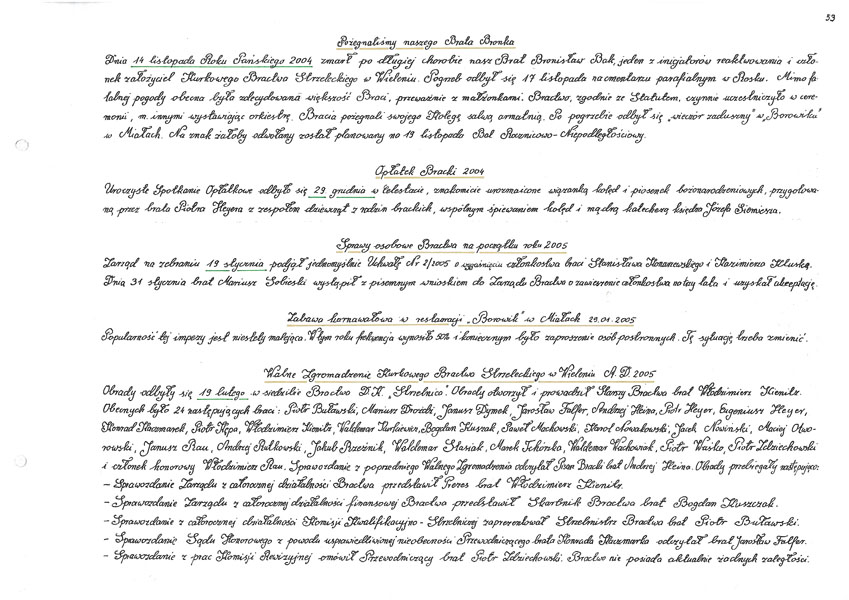 59
Pożegnaliśmy naszego Brata Bronka
Dnia 14 listopada Roku Pańskiego 2004 zmarł po długiej chorobie nasz Brat Bronisław Bąk, jeden z inicjatorów reaktwowania i czło-
nek założyciel Kurkowego Bractwa Strzeleckiego w Wieleniu. Pogrzeb odbył się 17 listopada na cmentarzu parafialnym w Rosku. Mimo fa-
talnej pogody obecna była zdecydowana większość Braci, przeważnie z małżonkami. Bractwo, zgodnie ze Statutem, czynnie uczestniczyło w cere-
monii, m. innymi wystawiając orkiestrę. Bracia pożegnali swojego Kolegę salwą armatnią. Po pogrzebie odbył się „wieczór zaduszny" w „Borowiku"
w Miałach. Na znak żałoby odwołany został planowany na 19 listopada Bal Rocznicowo-Niepodległościowy.
Opłatek Bracki 2004
Uroczyste Spotkanie Opłatkowe odbyło się 29 grudnia w Celestacie, znakomicie urozmaicone wiązanką kolęd i piosenek bożonarodzeniowych, przygotowa-
ną przez brata Piotra Heyera z zespołem dziewcząt z rodzin brackich, wspólnym śpiewaniem kolęd i mądrą katechezą księdza Józefa Siemiesza.
Sprawy osobowe Bractwa na początku roku 2005
Zarząd na zebraniu 19 stycznia podjął jednomyślnie Uchwałę Nr 2/2005 o wygaśnięciu członkostwa braci Stanisława Konanewskiego i Kazimierza Kluski.
Dnia 31 stycznia brat Mariusz Sobieski wystąpił z pisemnym wnioskiem do Zarządu Bractwa o zawieszenie członkostwa na trzy lata i uzyskał akceptację.
Zabawa karnawałowa w restauracji „Borowik" w Miałach 29.01.2005
Popularność tej imprezy jest niestety malejąca. W tym roku frekwencja wynosiła 50% i koniecznym było zaproszenie osób postronnych. Tę sytuację trzeba zmienić.
Walne Zgromadzenie Kurkowego Bractwa Strzeleckiego w Wieleniu A.D. 2005
Obrady odbyły się 19 lutego w siedzibie Bractwa D.K. „Strzelnica". Obrady otworzył i prowadził Starszy Bractwa brat Włodzimierz Kienitz.
Obecnych było 24 następujących braci: Piotr Buławski, Mariusz Drożdż, Janusz Dymek, Jarosław Falfer, Andrzej Heina, Piotr Heyer, Eugeniusz Heyer,
Konrad Kaczmarek, Piotr Kępa, Włodzimierz Kienitz, Waldemar Kurkiewicz, Bogdan Kuszak, Paweł Mackowski, Karol Nowakowski, Jacek Nowiński, Maciej Otwo-
rowski, Janusz Rau, Andrzej Rutkowski, Jakub Rzeźnik, Waldemar Stasiak, Marek Tchórzka, Waldemar Wachowiak, Piotr Waśko, Piotr Zdziechowski
i członek honorowy Włodzimierz Rau. Sprawozdanie z poprzedniego Walnego Zgromadzenia odczytał Pisarz Bracki brat Andrzej Heina. Obrady przebiegały następująco:
- Sprawozdanie Zarządu z całorocznej działalności Bractwa przedstawił Prezes brat Włodzimierz Kienitz.
- Sprawozdanie Zarządu z całorocznej działalności finansowej Bractwa przedstawił Skarbnik Bractwa brat Bogdan Kuszak.
- Sprawozdanie z całorocznej działalności Komisji Kwalifikacyjno-Strzelniczej zaprezentował Strzelmistrz Bractwa brat Piotr Buławski.
- Sprawozdanie Sądu Honorowego z powodu usprawiedliwionej nieobecności Przewodniczącego brata Konrada Kaczmarka odczytał brat Jarosław Falfer.
- Sprawozdanie z prac Komisji Rewizyjnej omówił Przewodniczący brat Piotr Zdziechowski. Bractwo nie posiada aktualnie żadnych zaległości.